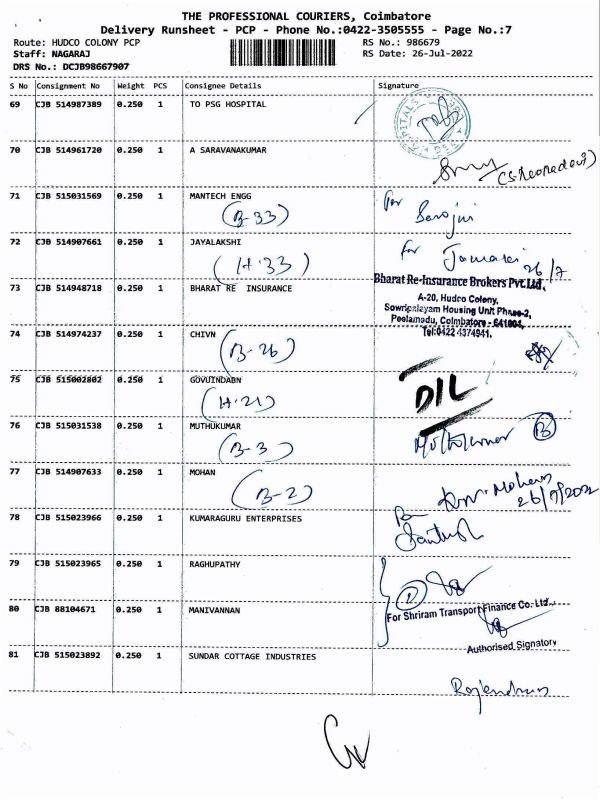 THE PROFESSIONAL COURIERS, Coimbatore
Delivery Runsheet - PCP - Phone No.:0422-3505555 - Page No.:7
Route: HUDCO COLONY PCP
RS No.: 986679
Staff: NAGARAJ
RS Date: 26-Jul-2022
DRS No.: DCJB98667907
S No Consignment No Weight PCS Consignee Details Signature
69 CJB 514987389 0.250 1 TO PSG HOSPITAL
70 CJB 514961720 0.250 1 A SARAVANAKUMAR
71 CJB 515031569 0.250 1 MANTECH ENGG
(B-33)
For Sarojini
72 CJB 514907661 0.250 1 JAYALAKSHI
(H-33)
for
26/7
73 CJB 514948718 0.250 1 BHARAT RE INSURANCE
Bharat Re-Insurance Brokers Pvt.Ltd.
A-20, Hudco Colony,
Sowripalayam Housing Unit Phase-2,
Peelamedu, Coimbatore - 641004.
Tel:0422 4374941.
74 CJB 514974237 0.250 1 CHIVN
(B-26)
75 CJB 515002802 0.250 1 GOVUINDABN
(H-21)
DIL
76 CJB 515031538 0.250 1 MUTHUKUMAR
(B-3)
77 CJB 514907633 0.250 1 MOHAN
(B-2)
26/7/2022
78 CJB 515023966 0.250 1 KUMARAGURU ENTERPRISES
79 CJB 515023965 0.250 1 RAGHUPATHY
80 CJB 88104671 0.250 1 MANIVANNAN
For Shriram Transport Finance Co. Ltd.,
Authorised Signatory
81 CJB 515023892 0.250 1 SUNDAR COTTAGE INDUSTRIES
Rajendran